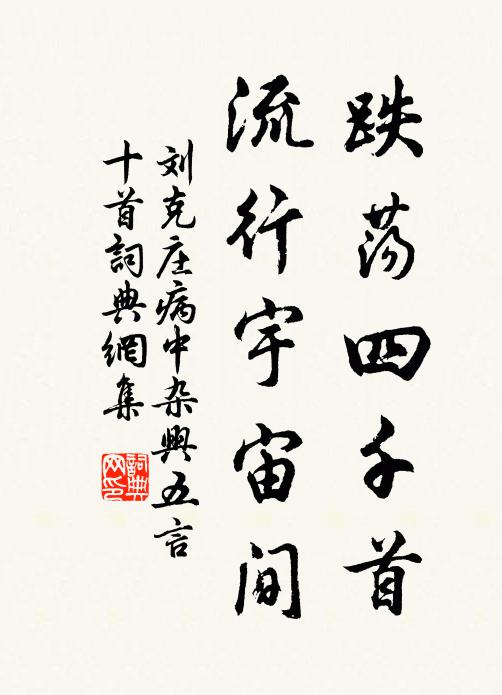 跌荡四千首
流行宇宙间
刘克庄病中杂興五言
十首詞典網集
詞典
网印